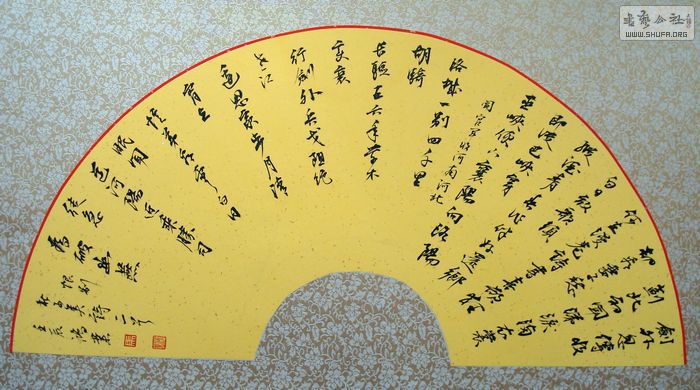 劍外忽傳收
薊北初聞涕淚滿衣裳
却看妻子愁
何在漫卷詩書喜欲狂
白日放歌須
縱酒青春作伴好還鄉
即從巴峽穿
巫峽便下襄陽向洛陽
聞官軍收河南河北
洛城一別四千里
胡騎
長驅五六年草木
變衰
行劍外兵戈阻絕
老江
邊思家步月清
宵立
憶弟看雲白日
眠聞
道河陽近乘勝司
徒急
為破幽燕
恨別
杜子美詩二首
壬辰
WWW.SHUFA.ORG